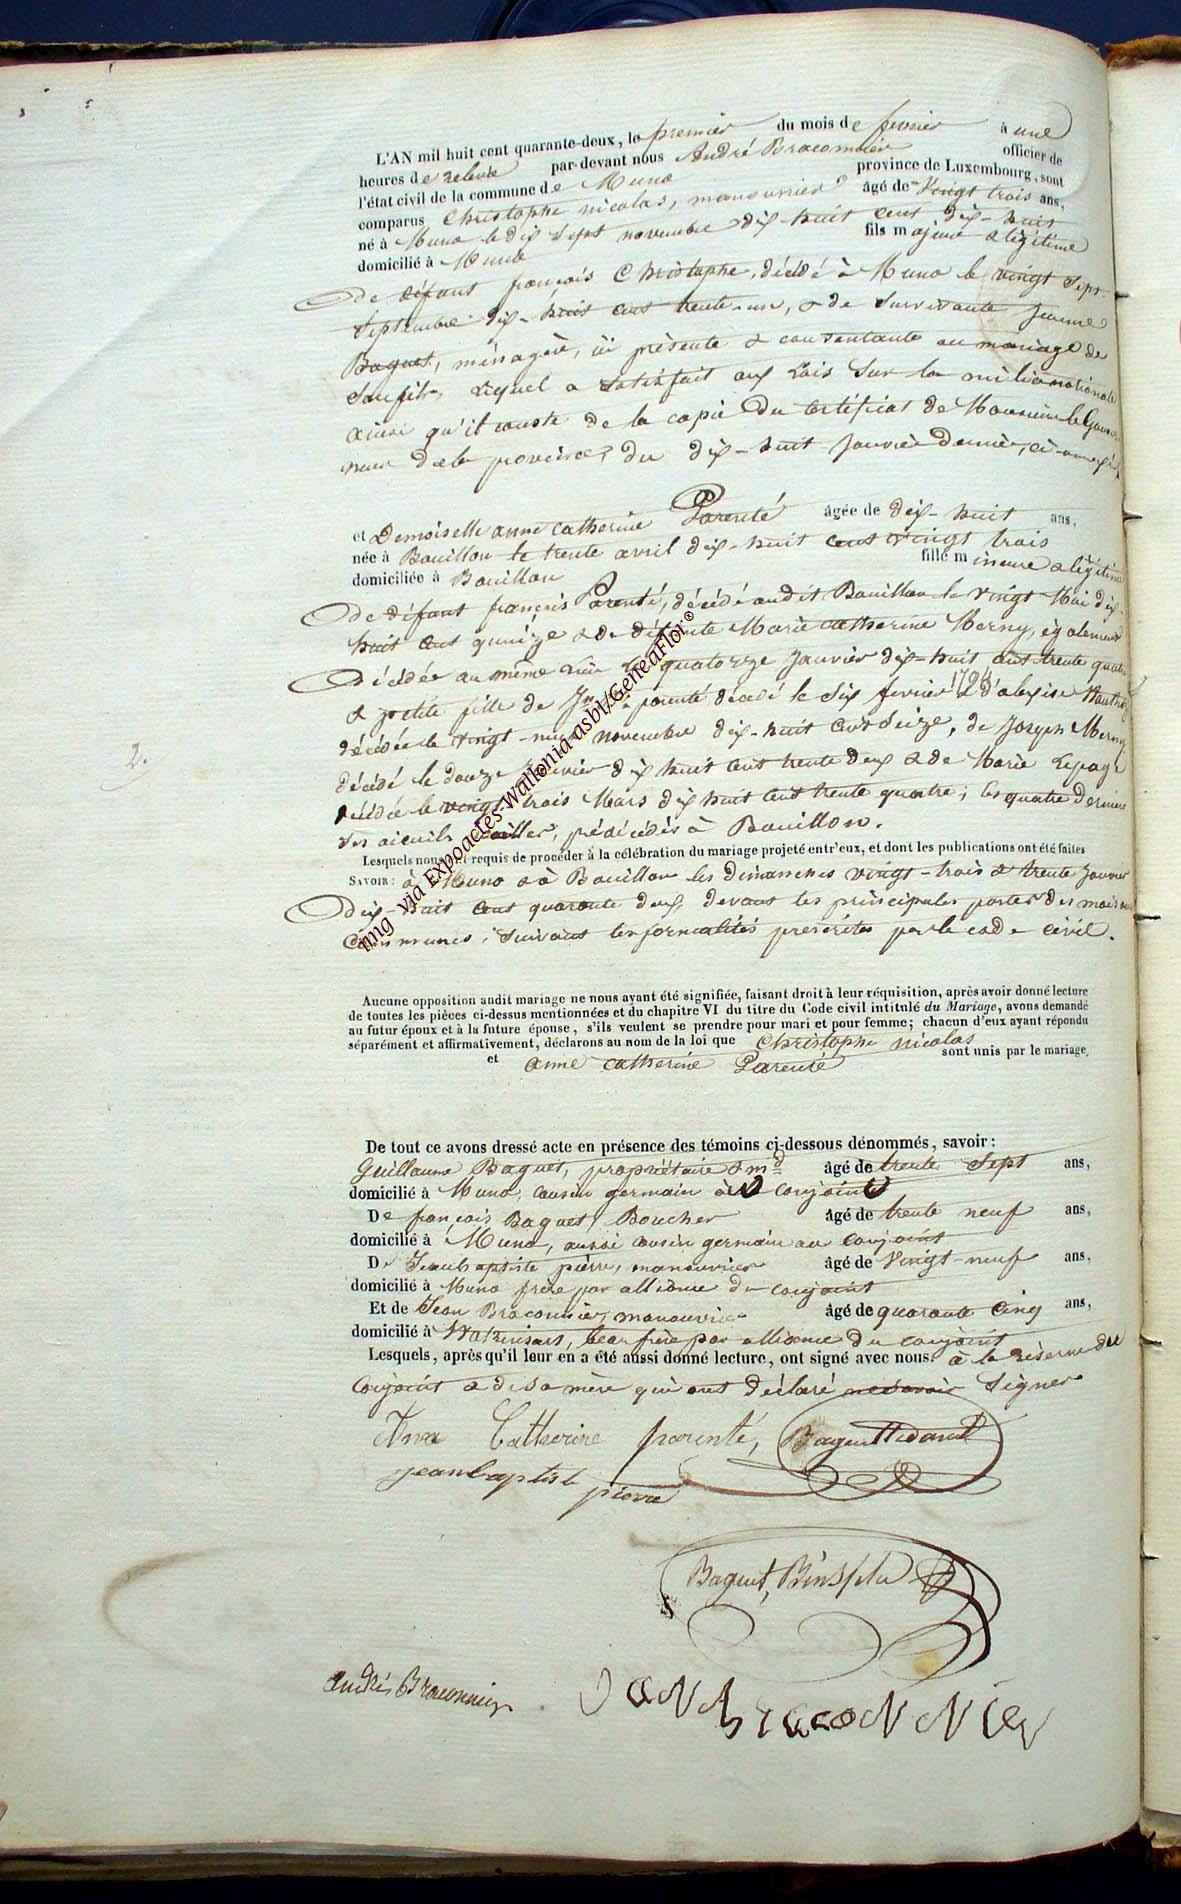 L'AN mil huit cent quarante-deux, le premier du mois de fevrier à une
heures de relevée par-devant nous André Braconnier officier de
l'état civil de la commune de Muno province de Luxembourg, sont
comparus Christophe nicolas, manouvrier âgé de Vingt trois ans,
né à Muno le dix Sept novembre dix-huit cent dix-huit
domicilié à Muno fils majeur & légitime
De défunt françois Christophe, décédé à Muno le vingt Sept
Septembre dix-huit cent trente-un, & de Survivante Jeanne
Baquet, ménagère, ici présente & consentante au mariage de
Son fils, Lequel a Satisfait aux Lois Sur la milice nationale
ainsi qu'il conste de la copie du certificat de Monsieur le Gouver
neur de la province, du dix-huit Janvier dernier, ci-annexé
et Demoiselle anne catherine Parenté âgée de dix-huit ans,
née à Bouillon le trente avril dix-huit cent vingt trois
domiciliée à Bouillon fille mineure & légitime
De défunt françois Parenté, décédé audit Bouillon le vingt Mai dix-
huit cent quinze & de défunte Marie catherine Merny, également
décédée au même lieu le quatorze Janvier dix-huit cent trente quatre
& petite fille de Jn parenté décédé le Six fevrier & d'alexise
décédée le vingt-neuf novembre dix-huit cent Seize, de Joseph Merny
décédé le douze Janvier dix huit cent trente deux & de Marie Lepage
décédée le vingt trois Mars dix huit cent trente quatre; les quatre derniers
Ses aieuls prédécédés à Bouillon.
2.
Lesquels nous ont requis de procéder à la célébration du mariage projeté entr'eux, et dont les publications ont été faites
SAVOIR: à Muno & à Bouillon les dimanches vingt-trois & trente Janvier
dix-huit cent quarante deux, devant les principales portes des maisons
communes, Suivant les formalités prescrites par le code civil.
Aucune opposition audit mariage ne nous ayant été signifiée, faisant droit à leur réquisition, après avoir donné lecture
de toutes les pièces ci-dessus mentionnées et du chapitre VI du titre du Code civil intitulé du Mariage, avons demandé
au futur époux et à la future épouse, s'ils veulent se prendre pour mari et pour femme; chacun d'eux ayant répondu
séparément et affirmativement, déclarons au nom de la loi que Christophe nicolas
et anne catherine Parenté sont unis par le mariage.
De tout ce avons dressé acte en présence des témoins ci-dessous dénommés, savoir:
Guillaume Baquet, propriétaire & md âgé de trente Sept ans,
domicilié à Muno, cousin germain conjoint
De françois Baquet, Boucher âgé de trente neuf ans,
domicilié à Muno, aussi cousin germain au conjoint
De Jeanbaptiste pierre, manouvrier âgé de Vingt-neuf ans,
domicilié à Muno frère par alliance du conjoint
Et de Jean Braconnier, manouvrier âgé de quarante Cinq ans,
domicilié à Watrinsart, beau frère par alliance du conjoint
Lesquels, après qu'il leur en a été aussi donné lecture, ont signé avec nous. à la réserve du
conjoint & de Sa mère qui ont déclaré ne Savoir Signer
Ann Catherine parenté,
jeanbaptiste pierre
Baquet,
André Braconnier
JEAN braconnier
nmg via Expoactes-Wallonia asbl/GeneaFlor©